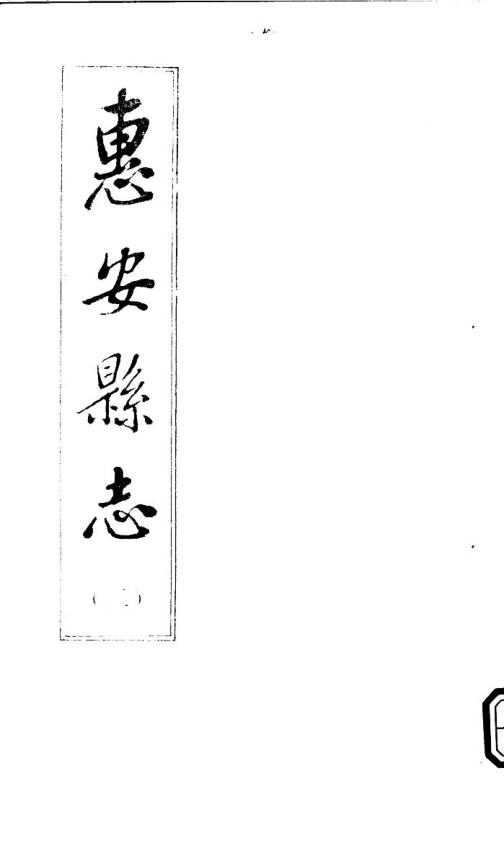 惠安縣志